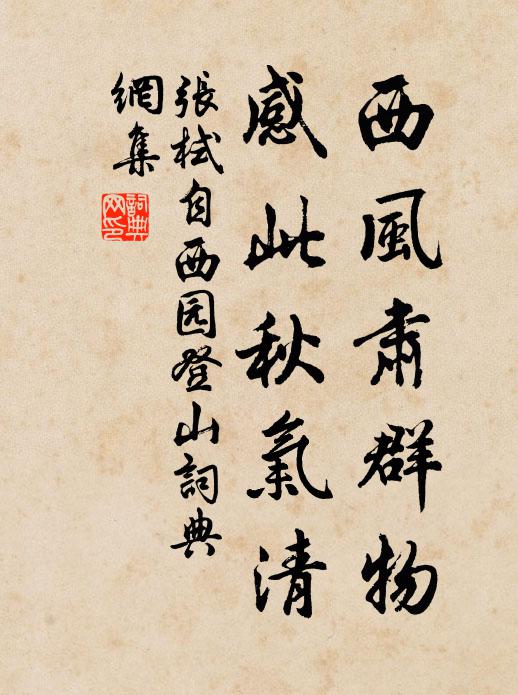 西風肅群物
感此秋氣清
張栻自西园登山詞典
網集
詞典
网印